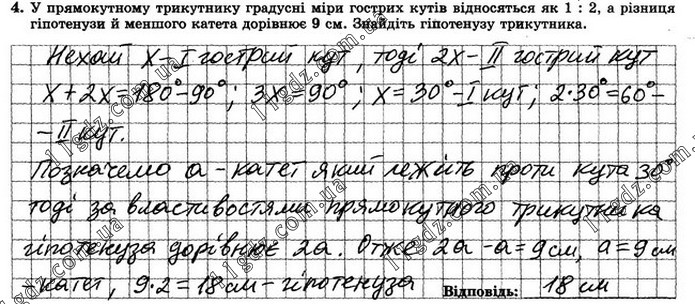 4. У прямокутному трикутнику градусні міри гострих кутів відносяться як 1 : 2, а різниця
гіпотенузи й меншого катета дорівнює 9 см. Знайдіть гіпотенузу трикутника.
Нехай x – I гострий кут, тоді 2x – II гострий кут
x + 2x = 180° – 90°; 3x = 90°; x = 30° – I кут; 2·30° = 60° –
– II кут.
Позначемо a – катет який лежить проти кута 30°
тоді за властивостями прямокутного трикутника
гіпотенуза дорівнює 2a. Отже 2a – a = 9 см, a = 9 см
– катет, 9·2 = 18 см – гіпотенуза
Відповідь: 18 см
11gdz.com.ua